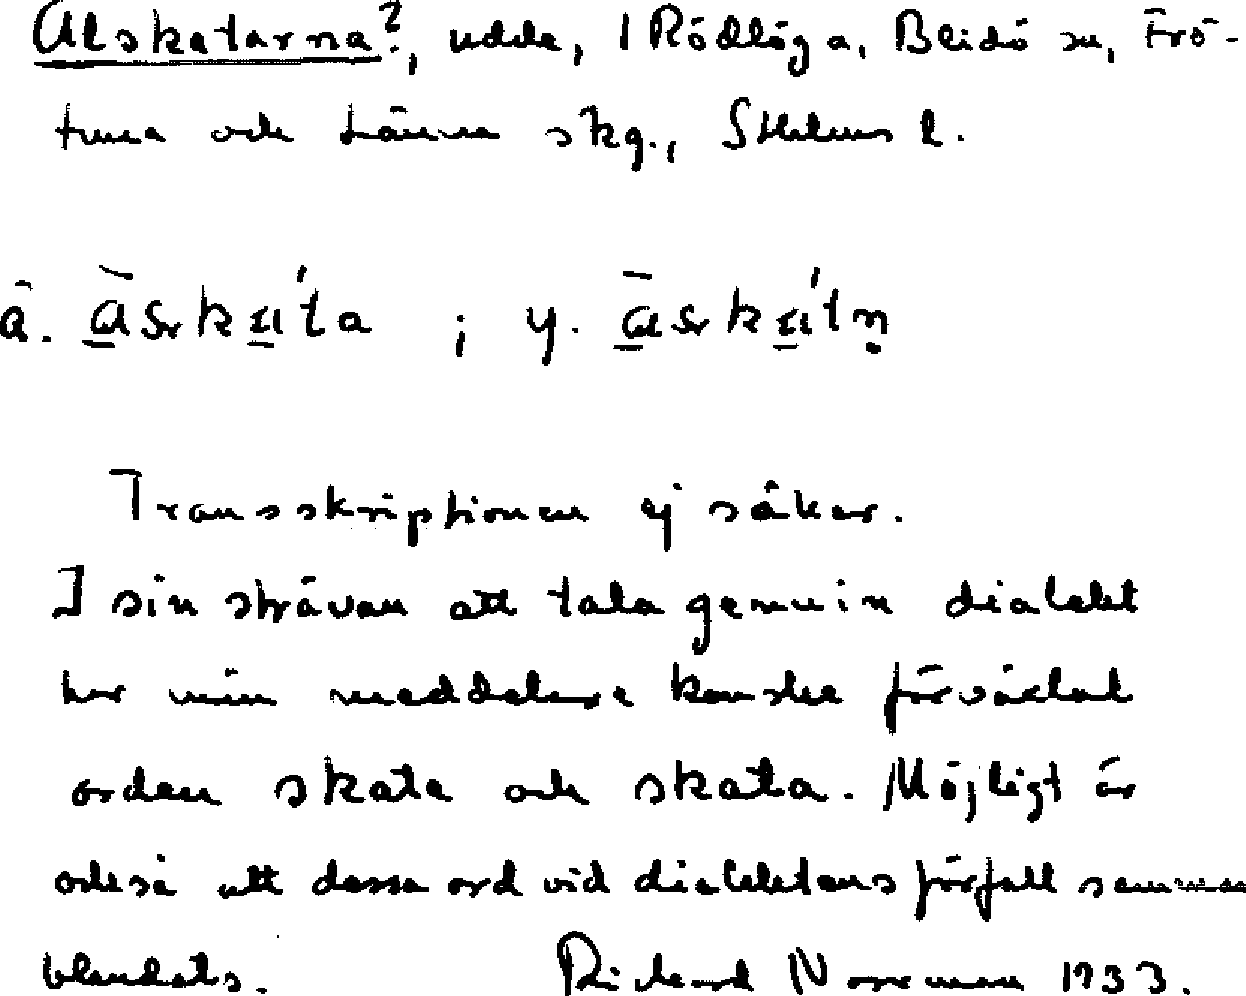 Alskatarna?, udde, i Rödlöga, Blidö sn, Frö-
tuna och Länna skg., Sthlms l.
ā. āskáta ; y. āskátn̥
Transskriptionen ej säker.
I sin strävan att tala genuin dialekt
har min meddelare kanske förväxlat
orden skate och skata. Möjligt är
också att dessa ord vid dialektens förfall samman
blandats. Rickard Norrman 1933.